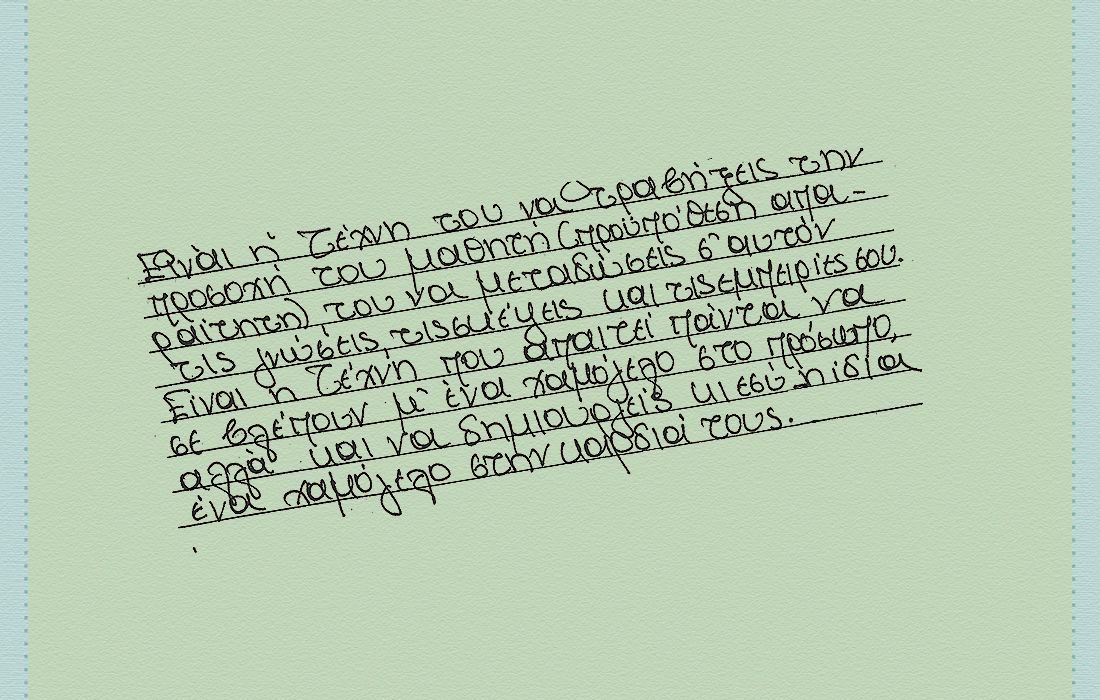 Είναι η τέχνη του να τραβήξεις την
προσοχή του μαθητή (προϋπόθεση απα-
ραίτητη) του να μεταδώσεις σ' αυτόν
τις γνώσεις, τις σκέψεις και τις εμπειρίες σου.
Είναι η τέχνη που απαιτεί πάντα να
σε βλέπουν μ' ένα χαμόγελο στο πρόσωπο,
αλλά και να δημιουργείς κι εσύ η ίδια
ένα χαμόγελο στην καρδιά τους.